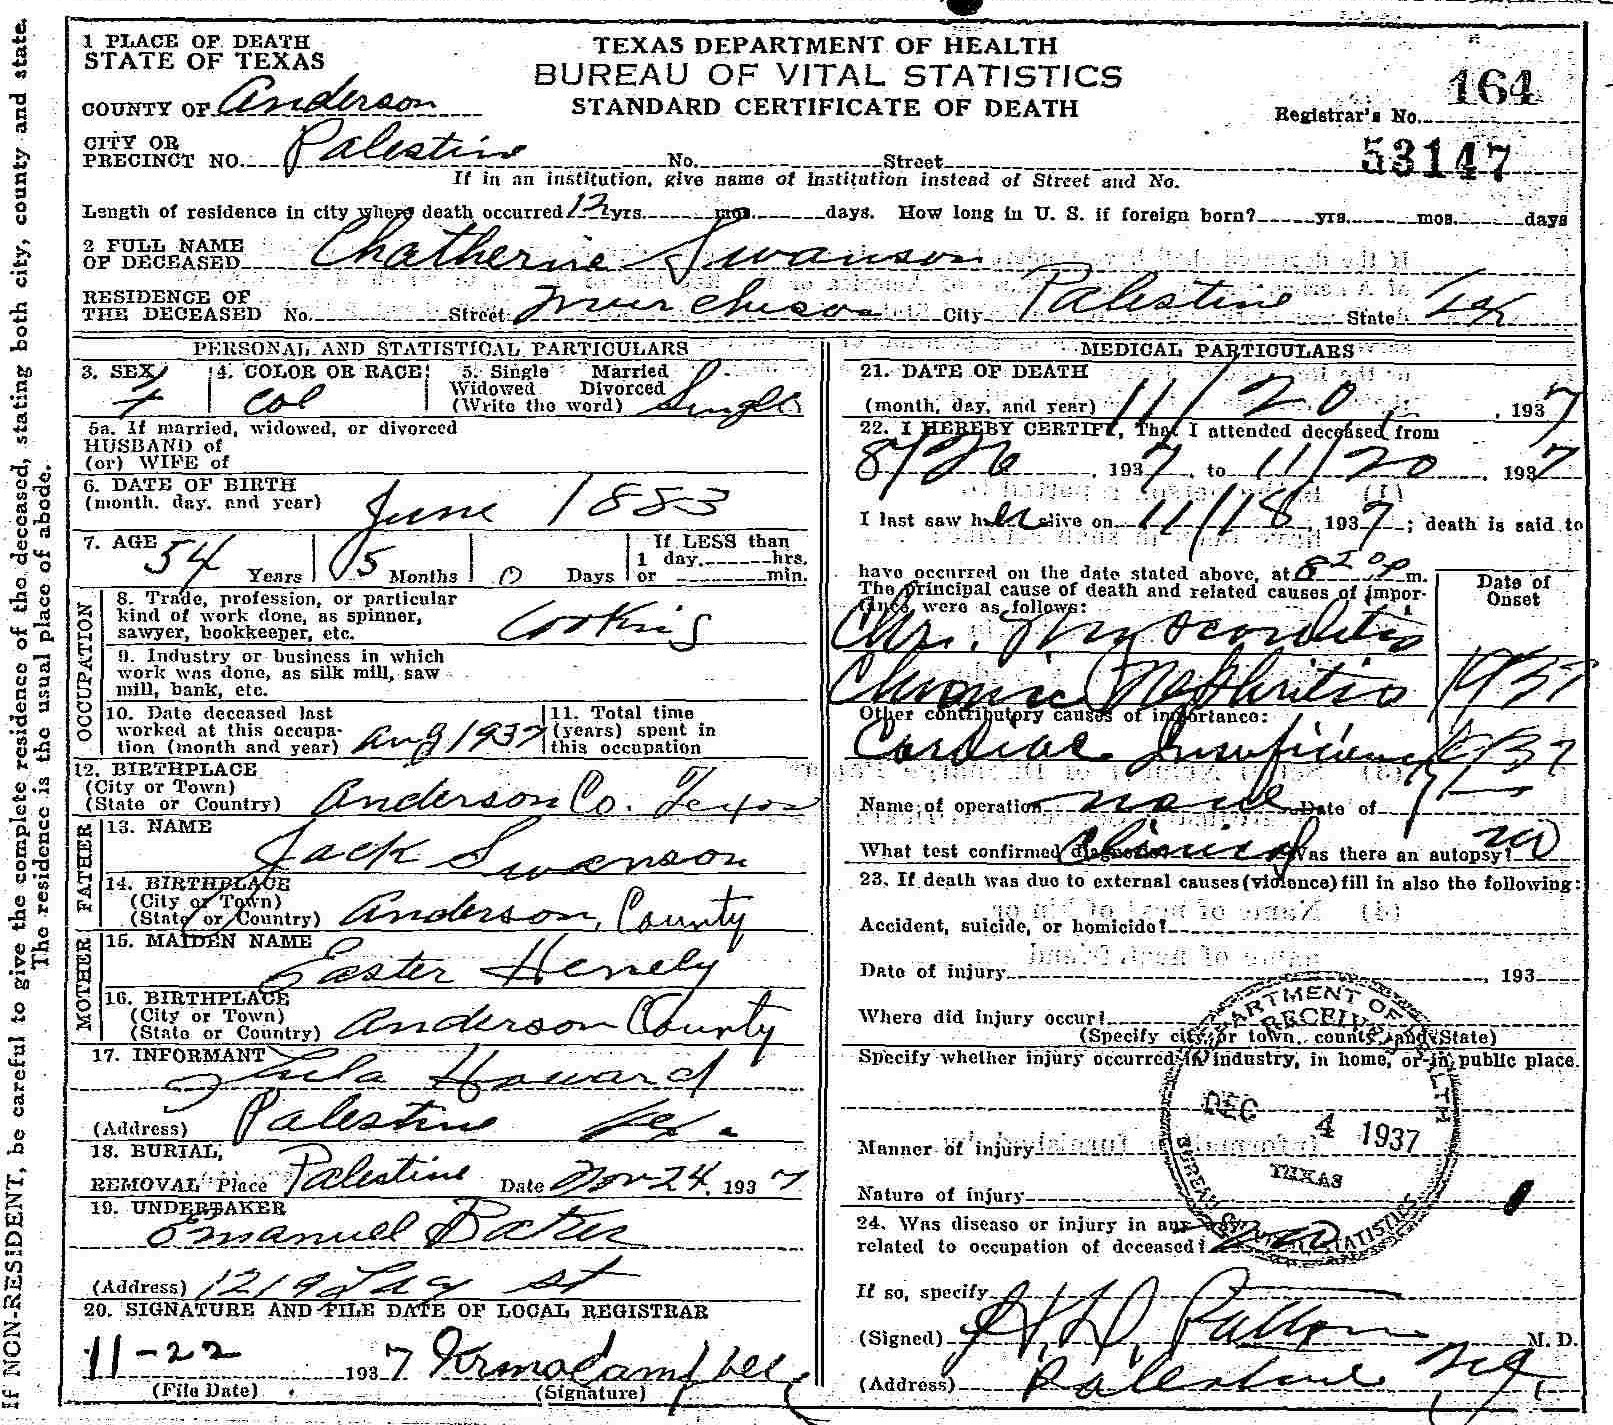 If NON-RESIDENT, be careful to give the complete residence of the deceased, stating both city, county and state.
The residence is the usual place of abode.
TEXAS DEPARTMENT OF HEALTH
BUREAU OF VITAL STATISTICS
STANDARD CERTIFICATE OF DEATH
1 PLACE OF DEATH
STATE OF TEXAS
COUNTY OF Anderson
Registrar's No. 164
53147
CITY OR
PRECINCT NO. Palestine No. Street
If in an institution, give name of institution instead of Street and No.
Length of residence in city where death occurred 12 yrs. mos. days. How long in U. S. if foreign born? yrs. mos. days
2 FULL NAME
OF DECEASED Chatherine Swanson
RESIDENCE OF
THE DECEASED No. Street Murchison City Palestine State Tex
PERSONAL AND STATISTICAL PARTICULARS
3. SEX F
4. COLOR OR RACE Col
5. Single Married
Widowed Divorced
(Write the word) Single
5a. If married, widowed, or divorced
HUSBAND of
(or) WIFE of
6. DATE OF BIRTH
(month, day, and year) June 1883
7. AGE 54 Years 5 Months 0 Days
If LESS than
1 day, hrs.
or min.
OCCUPATION
8. Trade, profession, or particular
kind of work done, as spinner,
sawyer, bookkeeper, etc. Cooking
9. Industry or business in which
work was done, as silk mill, saw
mill, bank, etc.
10. Date deceased last
worked at this occupa-
tion (month and year) Aug 1937
11. Total time
(years) spent in
this occupation
12. BIRTHPLACE
(City or Town)
(State or Country) Anderson Co. Texas
FATHER
13. NAME
Jack Swanson
14. BIRTHPLACE
(City or Town)
(State or Country) Anderson, County
MOTHER
15. MAIDEN NAME
Easter Henely
16. BIRTHPLACE
(City or Town)
(State or Country) Anderson County
17. INFORMANT
Lula Howard
(Address) Palestine Tex.
18. BURIAL,
REMOVAL Place Palestine Date Nov 24, 1937
19. UNDERTAKER
Emanuel Baker
(Address) 1219 St
20. SIGNATURE AND FILE DATE OF LOCAL REGISTRAR
11-22 1937
(File Date) (Signature)
MEDICAL PARTICULARS
21. DATE OF DEATH
(month, day, and year) 11/20, 1937
22. I HEREBY CERTIFY, That I attended deceased from
8/26, 1937, to 11/20, 1937
I last saw her alive on 11/18, 1937; death is said to
have occurred on the date stated above, at 820p m.
The principal cause of death and related causes of impor-
tance were as follows:
Date of
Onset
Chr. Myocarditis
Chronic Nephritis 1937
Other contributory causes of importance:
Cardiac Insufficiency 1937
Name of operation none Date of
What test confirmed diagnosis? Clinical Was there an autopsy? no
23. If death was due to external causes (violence) fill in also the following:
Accident, suicide, or homicide?
Date of injury , 193
Where did injury occur?
(Specify city, or town, county, and State)
Specify whether injury occurred in industry, in home, or in public place.
Manner of injury
Nature of injury
DEPARTMENT OF HEALTH
RECEIVED
DEC 4 1937
TEXAS
BUREAU OF VITAL STATISTICS
24. Was disease or injury in any way
related to occupation of deceased? no
If so, specify
(Signed) H. D. Patton M. D.
(Address) Palestine